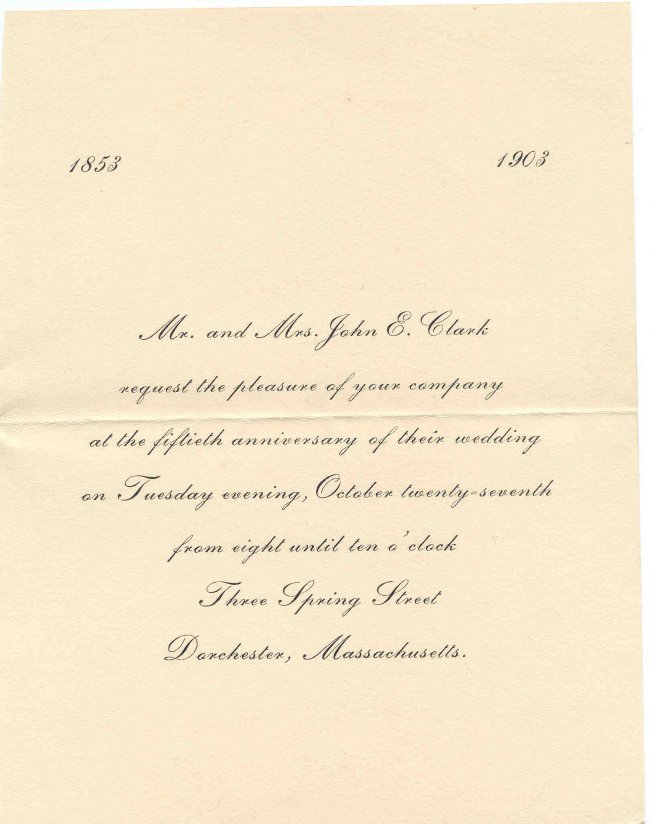 1853 1903
Mr. and Mrs. John E. Clark
request the pleasure of your company
at the fiftieth anniversary of their wedding
on Tuesday evening, October twenty-seventh
from eight until ten o'clock
Three Spring Street
Dorchester, Massachusetts.